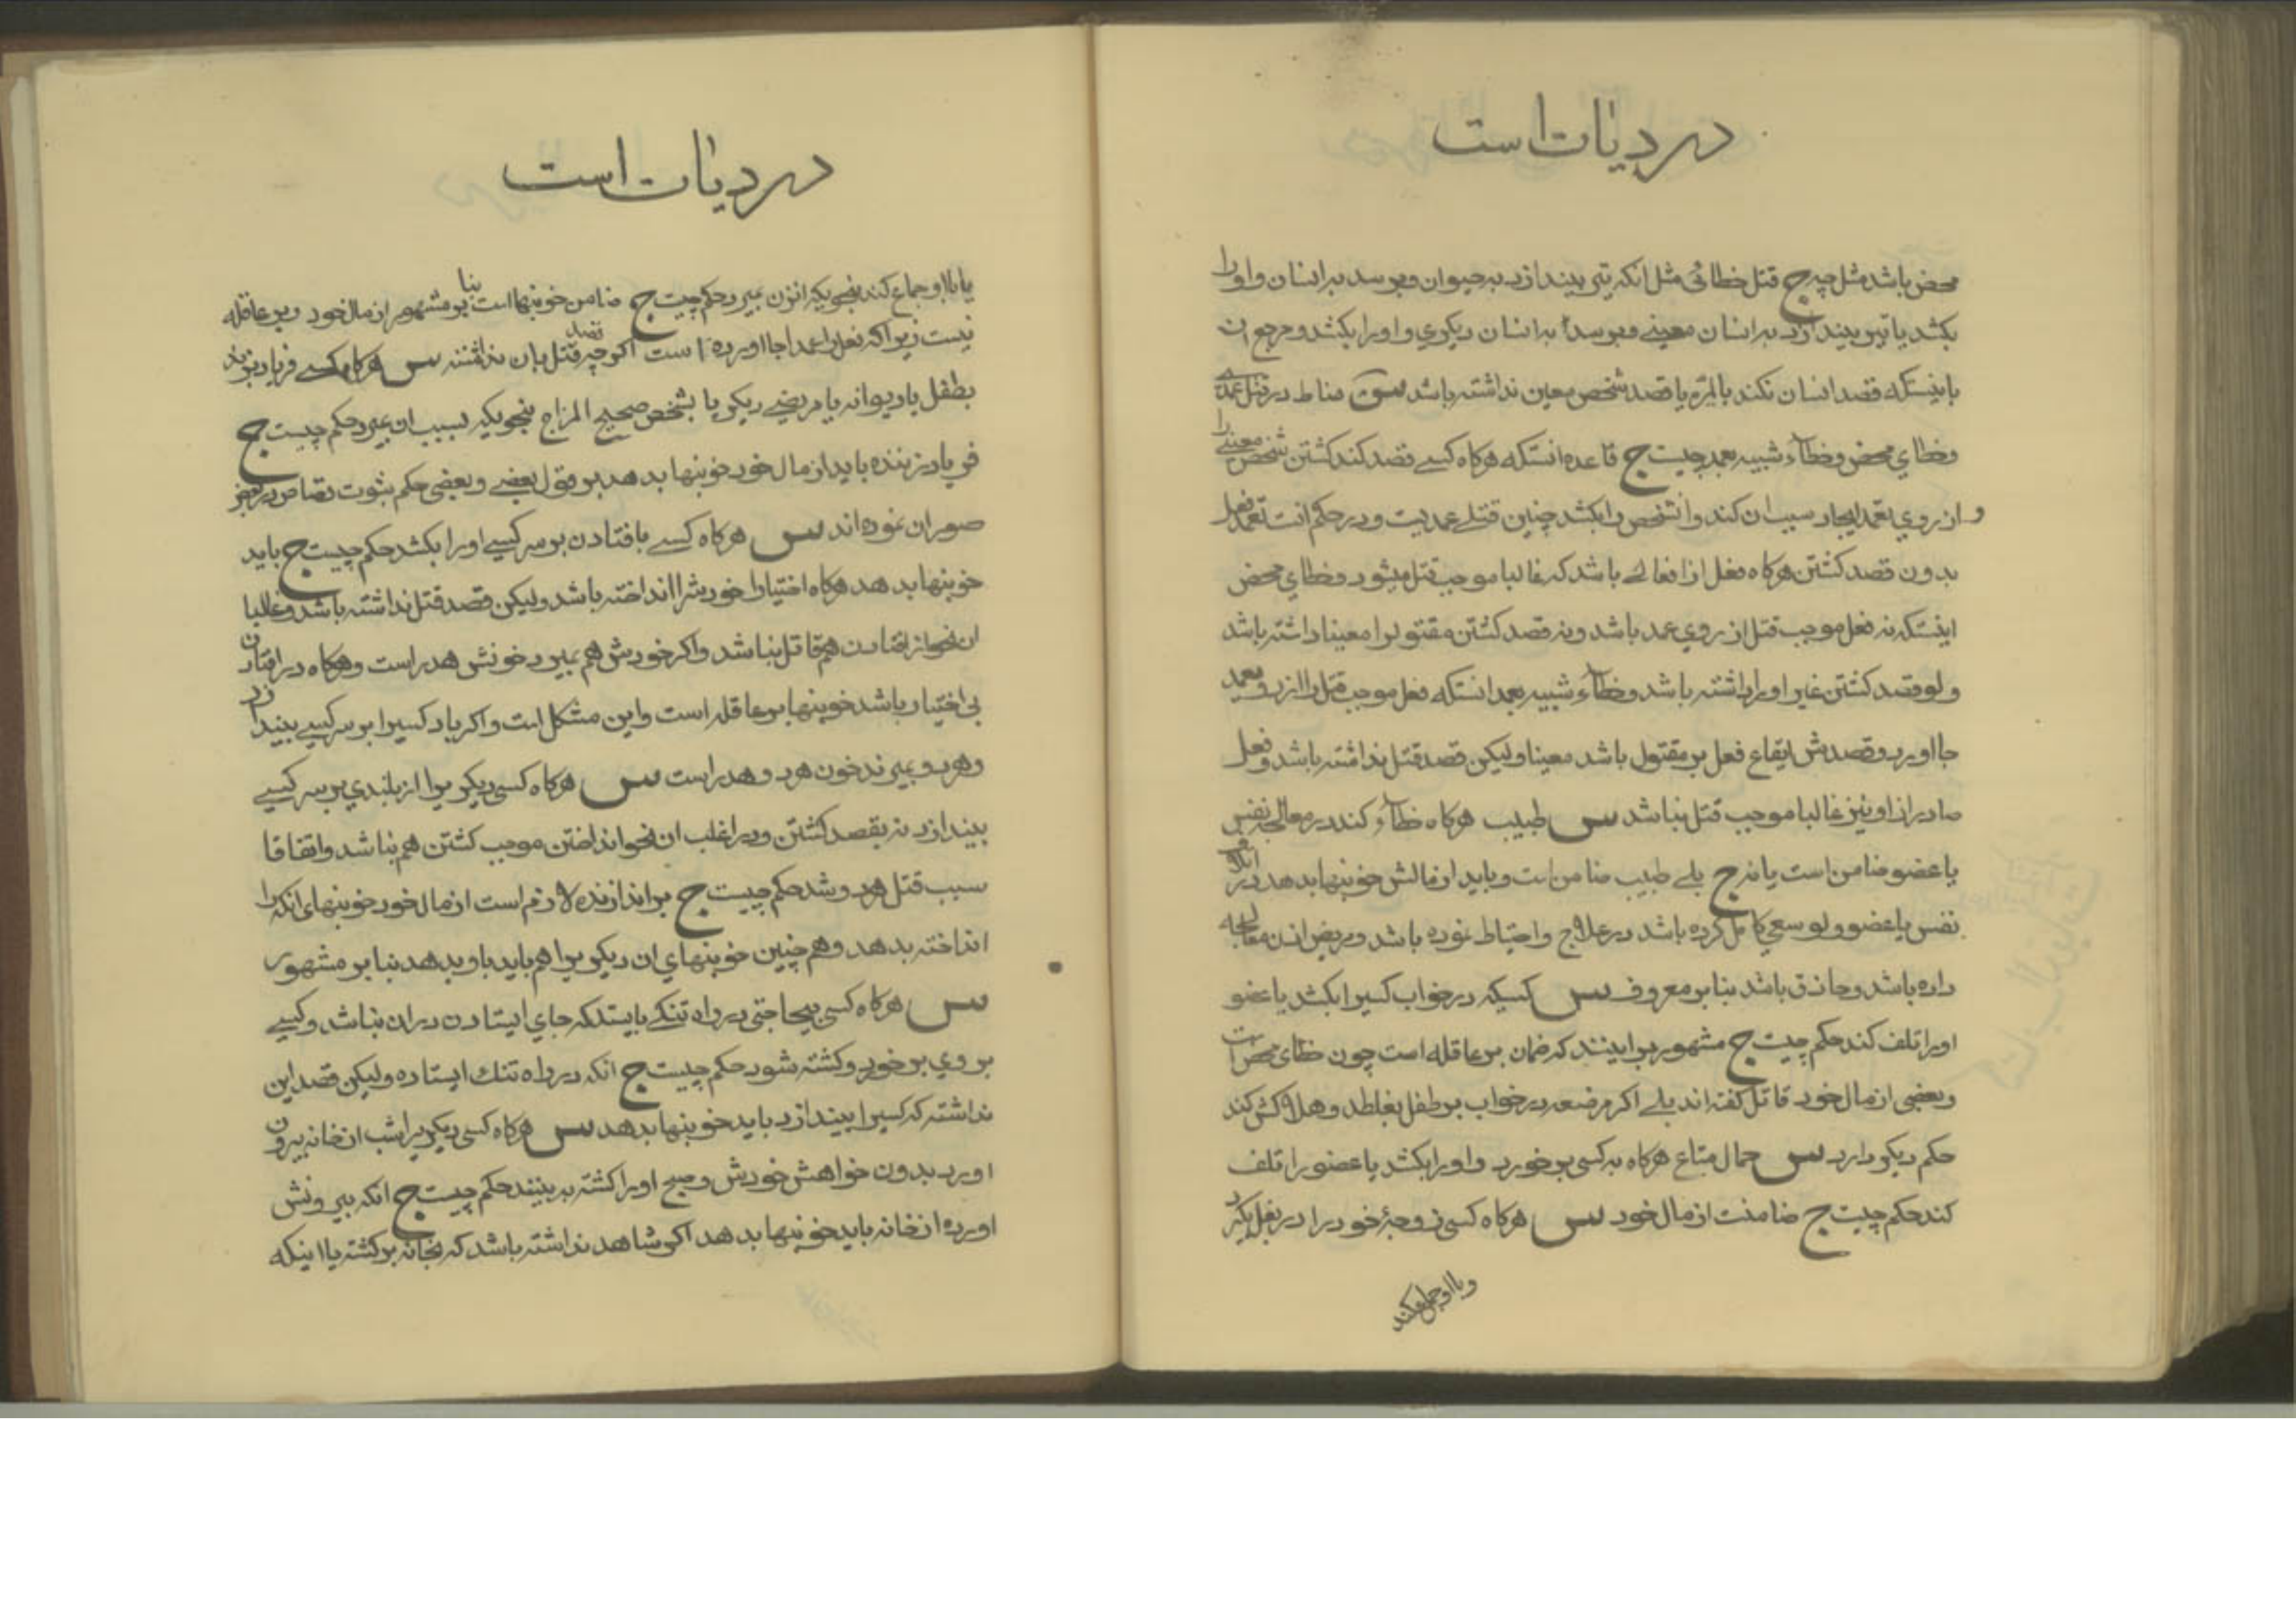 در دیات است
محض باشد مثل چه ج قتل خطائی مثل انکه تیر بیندازد به حیوان و برسد به انسان و او را
بکشد یا تیر بیندازد به انسان معینی و برسد به انسان دیکری و او را بکشد و مرجع ان
باینستکه قصد انسان نکند بالمرّه یا قصد شخص معین نداشته باشد س مناط در قتل عمدی
و خطای محض و خطاء شبیه بعمد چیست ج قاعده انستکه هرکاه کسی قصد کند کشتن شخص معینی را
و از روی تعمد ایجاد سبب ان کند و انشخص را بکشد چنین قتلی عمدیست و در حکم انست تعمد فعل
بدون قصد کشتن هرکاه فعل از افعالی باشد که غالبا موجب قتل میشود و خطای محض
اینستکه نه فعل موجب قتل از روی عمد باشد و نه قصد کشتن مقتول را معینا داشته باشد
و لو قصد کشتن غیر او را داشته باشد و خطاء شبیه بعمد انستکه فعل موجب قتل را از روی عمد
جا اورد و قصدش ایقاع فعل بر مقتول باشد معینا و لیکن قصد قتل نداشته باشد و فعل
صادر از او نیز غالبا موجب قتل نباشد س طبیب هرکاه خطاء کند در معالجه نفس
یا عضو ضامن است یا نه ج بلی طبیب ضامن است و باید از مالش خونبها بدهد در اتلاف
نفس یا عضو و لو سعی کامل کرده باشد در علاج و احتیاط نموده باشد و مریض اذن معالجه
داده باشد و حاذق باشد بنا بر معروف س کسیکه در خواب کسیرا بکشد یا عضو
او را تلف کند حکم چیست ج مشهور بر اینند که ضمان بر عاقله است چون خطای محض است
و بعضی از مال خود قاتل کفته اند بلی اکر مرضعه در خواب بر طفل بغلطد و هلاکش کند
حکم دیکر دارد س حمال متاع هرکاه به کسی بر خورد و او را بکشد یا عضو را تلف
کند حکم چیست ج ضامنست از مال خود س هرکاه کسی زوجهٔ خود را در بغل بکیرد
در دیات است
یا با او جماع کند بنحویکه انزن بمیرد حکم چیست ج ضامن خونبها است بنا بر مشهور از مال خود و بر عاقله
نیست زیرا که فعل را عمدا جا اورده است اکر چه قصد قتل بان نداشته س هرکاه کسی فریاد بزند
بطفل یا دیوانه یا مریضی دیکر یا بشخص صحیح المزاج بنحویکه بسبب ان بمیرد حکم چیست ج
فریاد زننده باید از مال خود خونبها بدهد بر قول بعضی و بعضی حکم بثبوت قصاص در بعض
صور ان نموده اند س هرکاه کسی بافتادن بر سر کسی او را بکشد حکم چیست ج باید
خونبها بدهد هرکاه اختیارا خودشرا انداخته باشد و لیکن قصد قتل نداشته باشد و غالبا
ان نحو از افتادن هم قاتل نباشد و اکر خودش هم بمیرد خونش هدر است و هرکاه در افتادن
بی اختیار باشد خونبها بر عاقله است و این مشکل است و اکر باد کسیرا بر سر کسی بیندازد
و هر دو بمیرند خون هر دو هدر است س هرکاه کسی دیکری را از بلندی بر سر کسی
بیندازد نه بقصد کشتن و در اغلب ان نحو انداختن موجب کشتن هم نباشد و اتفاقا
سبب قتل هر دو شد حکم چیست ج بر اندازنده لازم است از مال خود خونبهای انکه را
انداخته بدهد و هم چنین خونبهای ان دیکری را هم باید باو بدهد بنا بر مشهور
س هرکاه کسی بیحاجتی در راه تنکی بایستد که جای ایستادن در ان نباشد و کسی
بر وی بر خورد و کشته شود حکم چیست ج انکه در راه تنك ایستاده و لیکن قصد این
نداشته که کسیرا بیندازد باید خونبها بدهد س هرکاه کسی دیکریرا شب از خانه بیرون
اورد بدون خواهش خودش و صبح او را کشته به بینند حکم چیست ج انکه بیرونش
اورده از خانه باید خونبها بدهد اکر شاهد نداشته باشد که بخانه بر کشته یا اینکه